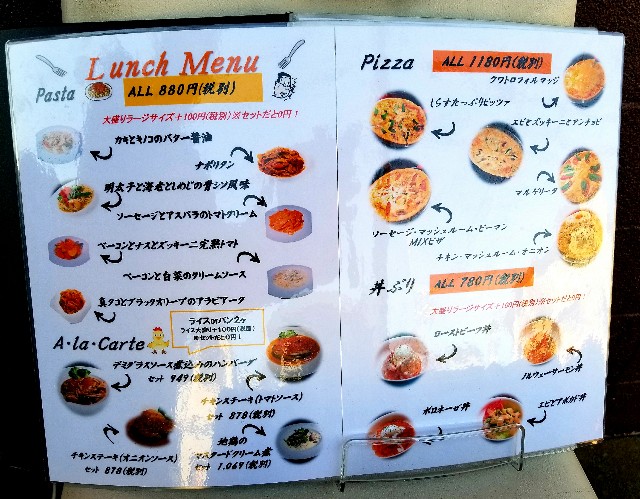 Lunch Menu
Pasta
ALL 880円(税別)
大盛りラージサイズ+100円(税別)※セットだと0円!
カキとキノコのバター醤油
ナポリタン
明太子と海老としめじの青シソ風味
ソーセージとアスパラのトマトクリーム
ベーコンとナスとズッキーニ完熟トマト
ベーコンと白菜のクリームソース
真タコとブラックオリーブのアラビアータ
A・la・Carte
ライスorパン2ヶ
ライス大盛り+100円(税別)
※セットだと0円!
デミグラスソース煮込みのハンバーグ
セット 949(税別)
チキンステーキ(トマトソース)
セット 878(税別)
チキンステーキ(オニオンソース)
セット 878(税別)
地鶏の
マスタードクリーム煮
セット 1,069(税別)
Pizza
ALL 1180円(税別)
クワトロフォルマッジ
しらすたっぷりピッツァ
エビとズッキーニとアンチョビ
マルゲリータ
ソーセージ・マッシュルーム・ピーマン
MIXピザ
チキン・マッシュルーム・オニオン
丼ぶり
ALL 780円(税別)
大盛りラージサイズ+100円(税別)※セットだと0円!
ローストビーフ丼
ノルウェーサーモン丼
ボロネーゼ丼
エビとアボカド丼